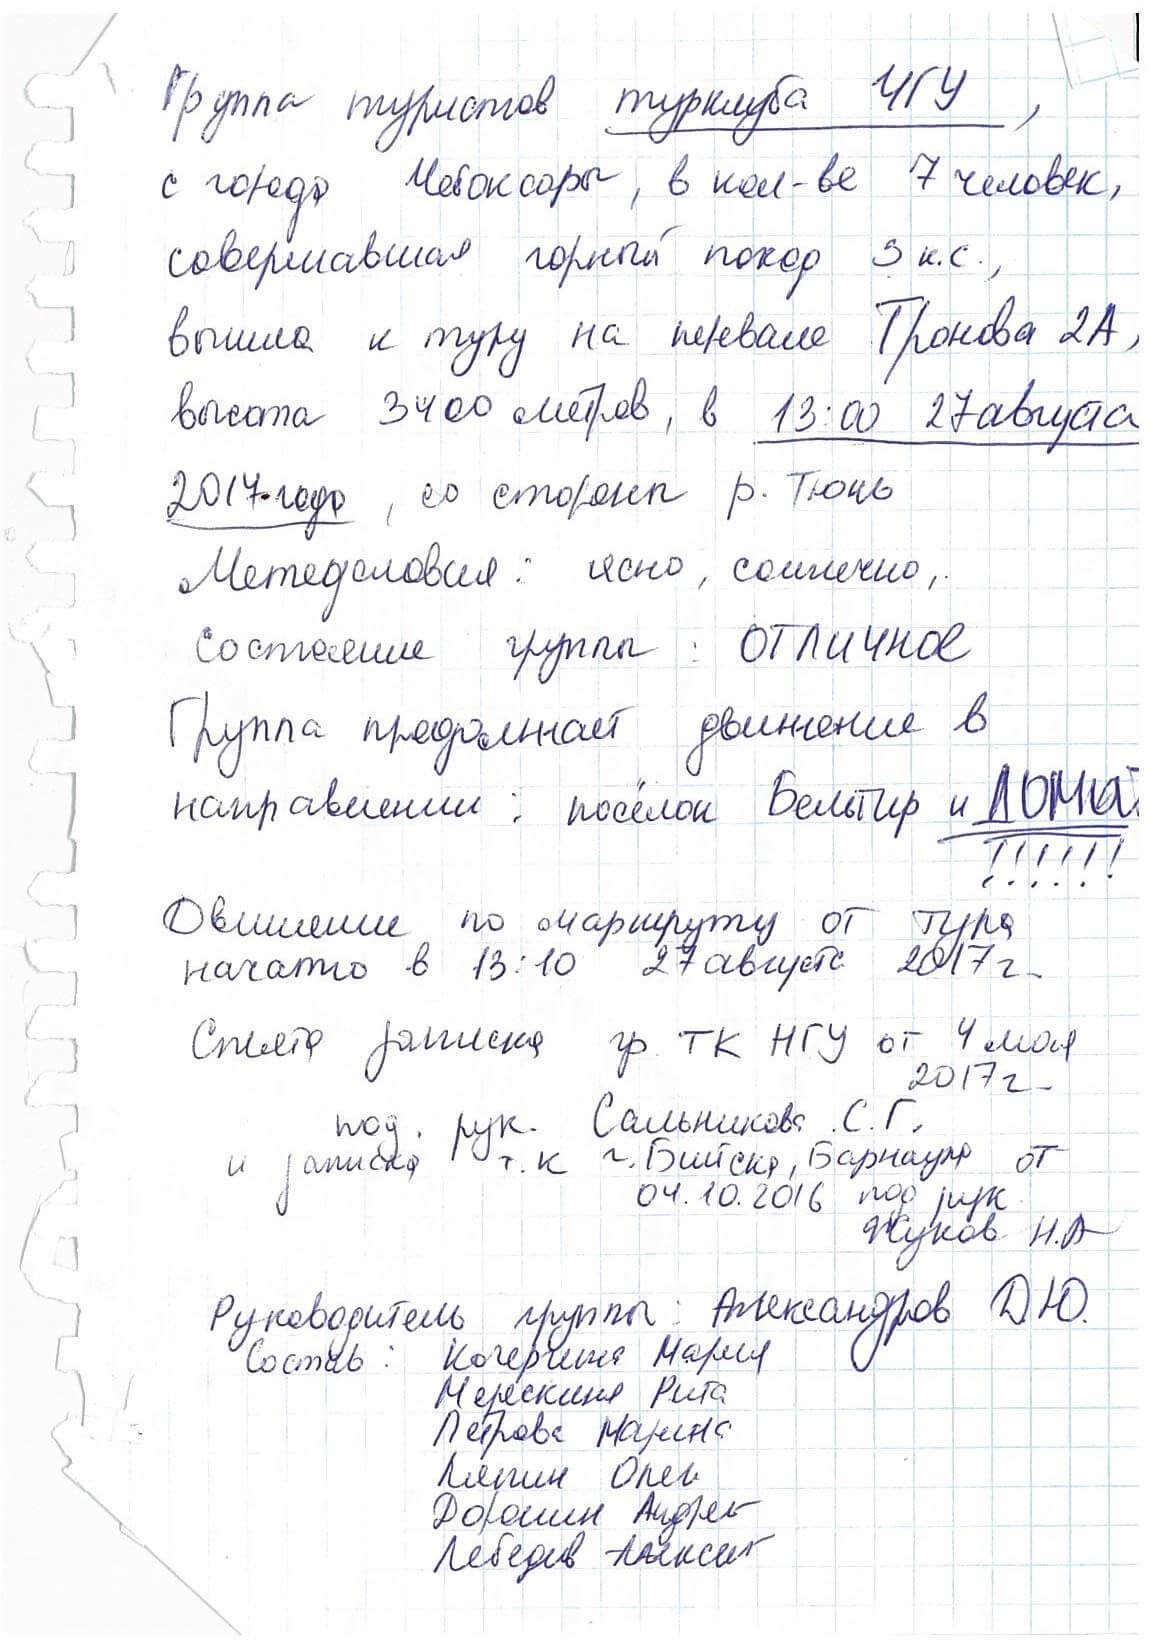 Группа туристов турклуба ЧГУ,
с города Чебоксары, в кол-ве 7 человек,
совершавшая горный поход 3 к.с.,
вышла к туру на перевале Тронова 2А,
высота 3400 метров, в 13:00 27 августа
2017 года, со стороны р. Тюнь
Метеоусловия: ясно, солнечно,
состояние группы: ОТЛИЧНОЕ
Группа продолжает движение в
направлении: посёлок Бельтир и ДОМОЙ
!!!!!!
Движение по маршруту от тура
начато в 13:10 27 августа 2017г.
Снята записка гр. ТК НГУ от 4 мая
2017г.
под. рук. Сальникова С.Г.
и записка т.к г. Бийска, Барнаула от
04.10.2016 под рук.
Жуков Н.А
Руководитель группы: Александров Д.Ю.
Состав: Мария
Рита
Петрова Марина
Ляпин Олег
Доронин Андрей
Лебедев Алексей